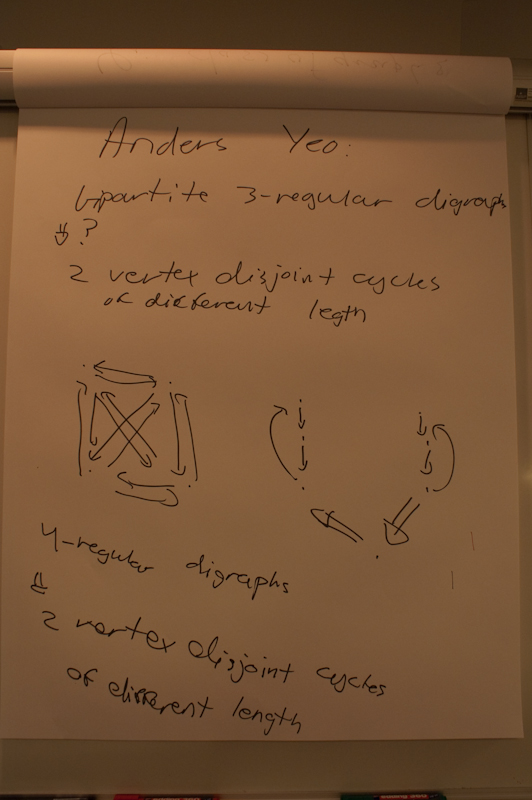 Anders Yeo:
bipartite 3-regular digraphs
⇓ ?
2 vertex disjoint cycles
of different legth
4-regular digraphs
⇓
2 vertex disjoint cycles
of different length